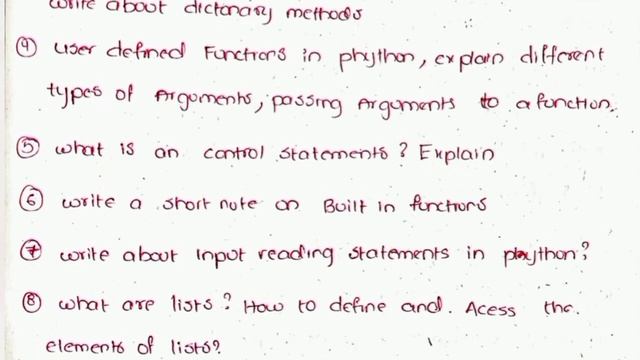 write about dictonary methods
④ user defined Functions in phython, explain different
types of Arguments, passing Arguments to a function.
⑤ what is an control statements? Explain
⑥ write a short note on Built in functions
⑦ write about Input reading statements in python?
⑧ what are lists? How to define and. Acess the.
elements of lists?